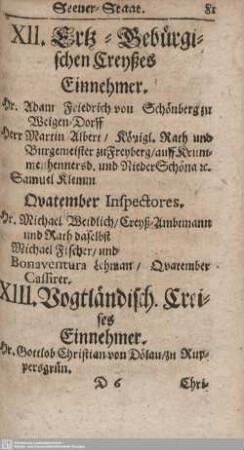 Steuer-Staat. 81
XII. Ertz-Gebürgi-
schen Creyßes
Einnehmer.
Hr. Adam Friedrich von Schönberg zu
Weigen-Dorff
Herr Martin Albert / Königl. Rath und
Burgemeister zu Freyberg / auff Krum-
menhennersd. und Nieder Schöna ꝛc.
Samuel Klemm
Qvatember Inspectores.
Hr. Michael Weidlich / Creyß-Ambtmann
und Rath daselbst
Michael Fischer / und
Bonaventura Lehman / Qvatember
Cassirer.
XIII. Vogtländisch. Crei-
ses
Einnehmer.
Hr. Gottlob Christian von Dölau / zu Rup-
persgrün.
D 6 Chri-